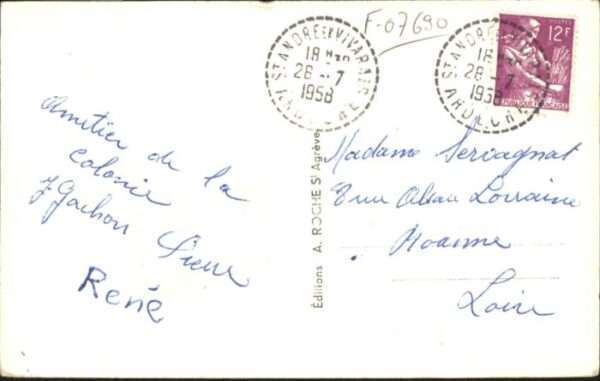 F-07690
ST ANDRÉ EN VIVARAIS
18 H
28 - 7
1958
ARDECHE
ST ANDRÉ EN VIVARAIS
18 H
28 - 7
1958
ARDECHE
POSTES
12F
REPUBLIQUE FRANÇAISE
Amitier de la
Colonie
J Gachon Pierre
René
Editions A. ROCHE St Agrève
Madame Servagnat
8 rue Alsau Lorraine
Roanne
Loire